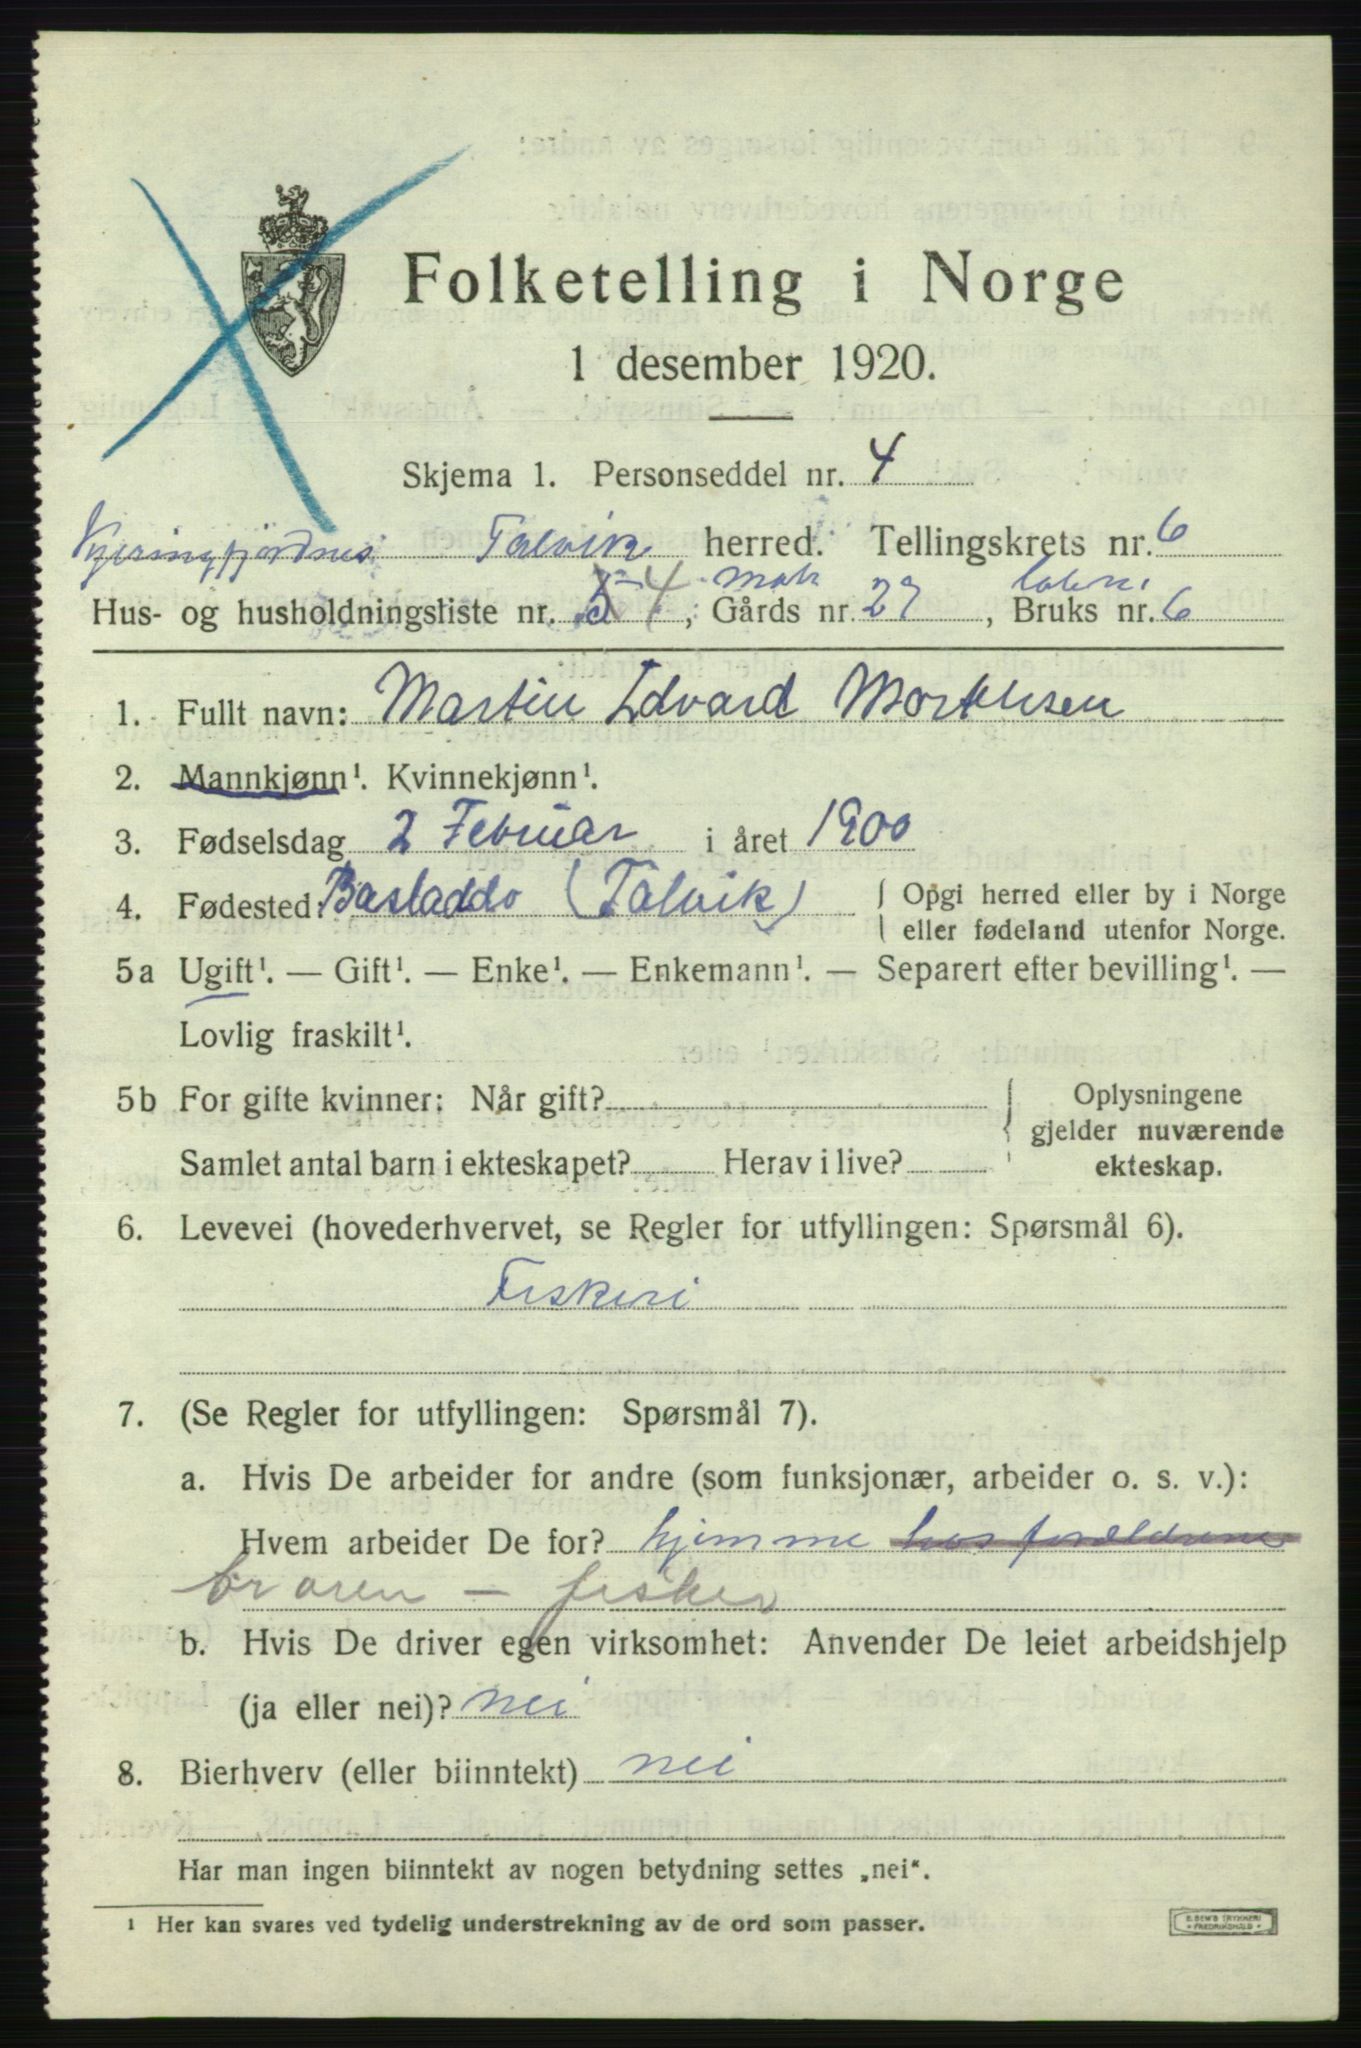 Folketelling i Norge
1 desember 1920.
Skjema 1. Personseddel nr. 4
Talvik herred. Tellingskrets nr. 6
Hus- og husholdningsliste nr. 5 4, Gårds nr. 27, Bruks nr. 6
1. Fullt navn: Martin Edvard Mortensen
2. Mannkjønn¹. Kvinnekjønn¹.
3. Fødselsdag 2 Februar i året 1900
4. Fødested: Basladdo (Talvik) Opgi herred eller by i Norge
eller fødeland utenfor Norge.
5a Ugift¹. — Gift¹. — Enke¹. — Enkemann¹. — Separert efter bevilling¹. —
Lovlig fraskilt¹.
5b For gifte kvinner: Når gift? Oplysningene
gjelder nuværende
Samlet antal barn i ekteskapet? Herav i live? ekteskap.
6. Levevei (hovederhvervet, se Regler for utfyllingen: Spørsmål 6).
Fiskeri
7. (Se Regler for utfyllingen: Spørsmål 7).
a. Hvis De arbeider for andre (som funksjonær, arbeider o. s. v.):
Hvem arbeider De for? hjemme hos forældrene
broren — fisker
b. Hvis De driver egen virksomhet: Anvender De leiet arbeidshjelp
(ja eller nei)? nei
8. Bierhverv (eller biinntekt) nei
Har man ingen biinntekt av nogen betydning settes „nei“.
¹ Her kan svares ved tydelig understrekning av de ord som passer.